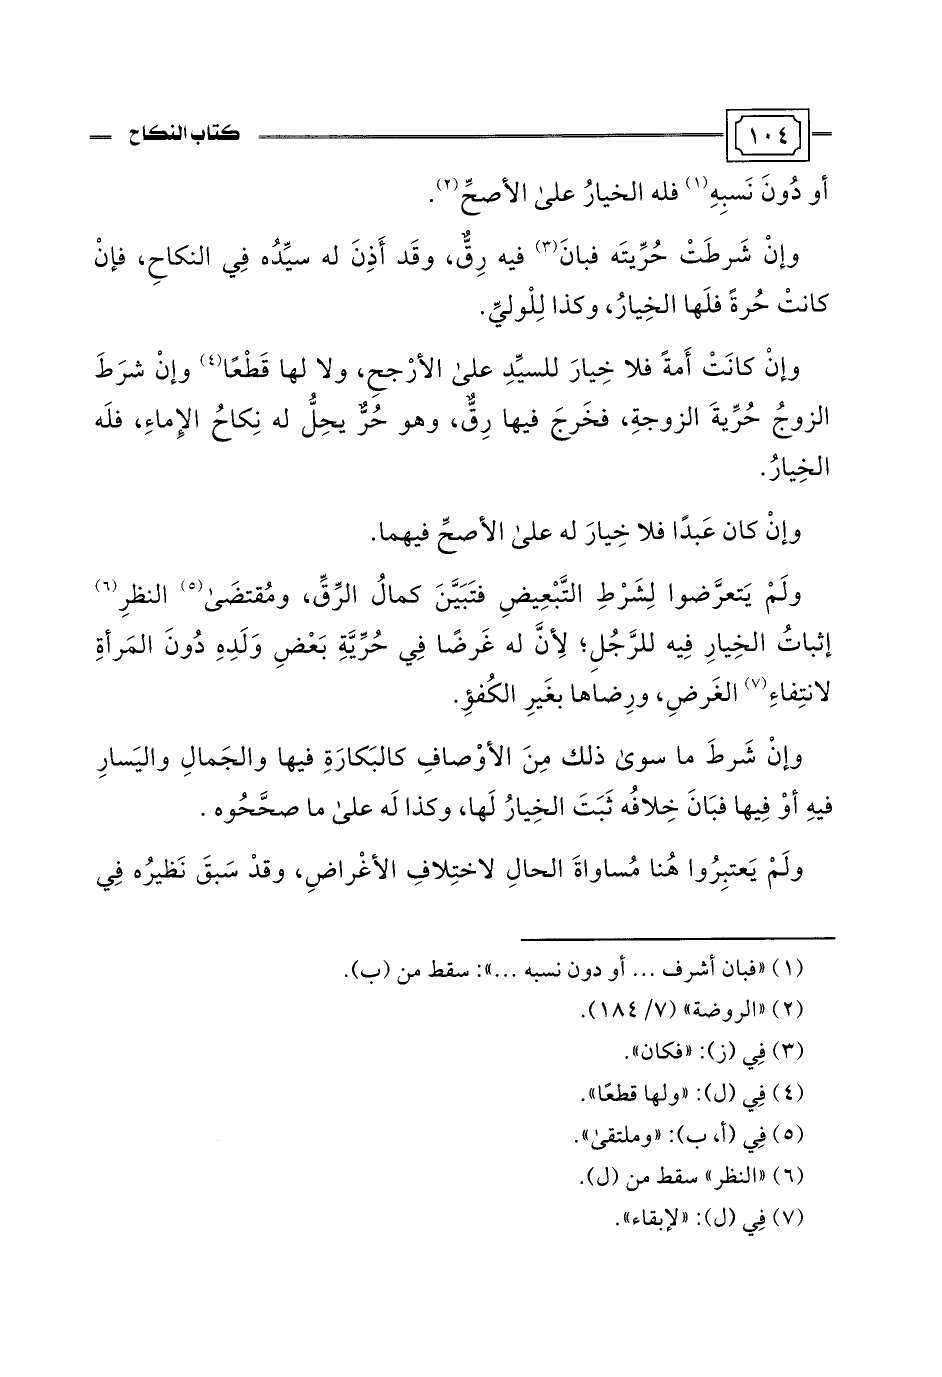 ١٠٤ كتاب النكاح
أو دُونَ نَسبِهِ(١) فله الخيارُ علىٰ الأصحِّ(٢).
وإنْ شَرطَتْ حُرِّيتَه فبانَ(٣) فيه رِقٌّ، وقَد أَذِنَ له سيِّدُه فِي النكاحِ، فإنْ
كانتْ حُرةً فلَها الخِيارُ، وكذا لِلْوليِّ.
وإنْ كانَتْ أَمةً فلا خِيارَ للسيِّدِ علىٰ الأرْجحِ، ولا لها قَطْعًا(٤) وإنْ شرطَ
الزوجُ حُرِّيةَ الزوجةِ، فخَرجَ فيها رِقٌّ، وهو حُرٌّ يحِلُّ له نِكاحُ الإِماءِ، فلَه
الخِيارُ.
وإنْ كان عَبدًا فلا خِيارَ له علىٰ الأصحِّ فيهما.
ولَمْ يَتعرَّضوا لِشَرْطِ التَّبْعِيضِ فتَبَيَّنَ كمالُ الرِّقِّ، ومُقتضَىٰ(٥) النظرِ(٦)
إثباتُ الخِيارِ فِيه للرَّجُلِ؛ لِأنَّ له غَرضًا فِي حُرِّيَّةِ بَعْضِ وَلَدِهِ دُونَ المَرأةِ
لانتِفاءِ(٧) الغَرضِ، ورِضاها بغَيرِ الكُفؤِ.
وإنْ شَرطَ ما سوىٰ ذلك مِنَ الأوْصافِ كالبَكارَةِ فيها والجَمالِ واليَسارِ
فيهِ أوْ فِيها فبَانَ خِلافُه ثَبَتَ الخِيارُ لَها، وكذا لَه علىٰ ما صحَّحُوه .
ولَمْ يَعتبِرُوا هُنا مُساواةَ الحالِ لاختِلافِ الأغْراضِ، وقدْ سَبقَ نَظيرُه فِي
(١) «فبان أشرف ... أو دون نسبه ...»: سقط من (ب).
(٢) «الروضة» (٧/ ١٨٤).
(٣) فِي (ز): «فكان».
(٤) فِي (ل): «ولها قطعًا».
(٥) فِي (أ، ب): «وملتقىٰ».
(٦) «النظر» سقط من (ل).
(٧) فِي (ل): «لإبقاء».